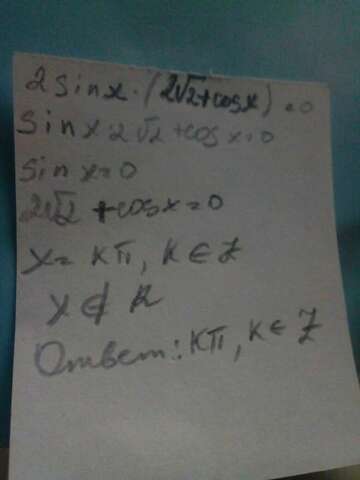 2 sin x · (2√2 + cos x) = 0
sin x · 2√2 + cos x = 0
sin x = 0
2√2 + cos x = 0
x = kπ, k ∈ Z
x ∉ R
Ответ: kπ, k ∈ Z